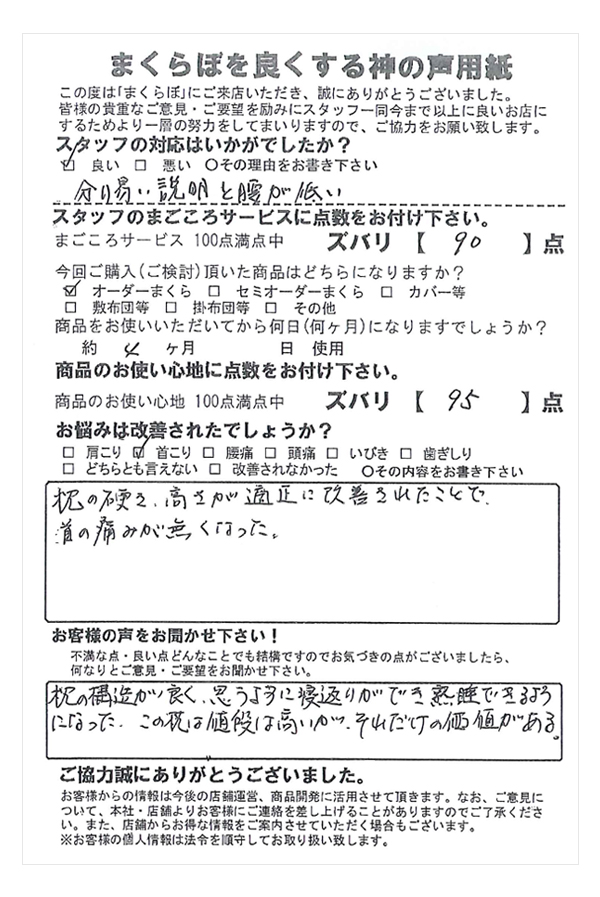 まくらぼを良くする神の声用紙
この度は「まくらぼ」にご来店いただき、誠にありがとうございました。
皆様の貴重なご意見・ご要望を励みにスタッフ一同今まで以上に良いお店に
するためより一層の努力をしてまいりますので、ご協力をお願い致します。
スタッフの対応はいかがでしたか？
☑ 良い □ 悪い ○その理由をお書き下さい
分り易い説明と腰が低い
スタッフのまごころサービスに点数をお付け下さい。
まごころサービス 100点満点中 ズバリ【 90 】点
今回ご購入(ご検討)頂いた商品はどちらになりますか？
☑ オーダーまくら □ セミオーダーまくら □ カバー等
□ 敷布団等 □ 掛布団等 □ その他
商品をお使いいただいてから何日(何ヶ月)になりますでしょうか？
約 4 ヶ月 日 使用
商品のお使い心地に点数をお付け下さい。
商品のお使い心地 100点満点中 ズバリ【 95 】点
お悩みは改善されたでしょうか？
□ 肩こり ☑ 首こり □ 腰痛 □ 頭痛 □ いびき □ 歯ぎしり
□ どちらとも言えない □ 改善されなかった ○その内容をお書き下さい
枕の硬さ、高さが適正に改善されたことで、
首の痛みが無くなった。
お客様の声をお聞かせ下さい！
不満な点・良い点どんなことでも結構ですのでお気づきの点がございましたら、
何なりとご意見・ご要望をお聞かせ下さい。
枕の構造が良く、思うように寝返りができ熟睡できるよう
になった。この枕は値段は高いが、それだけの価値がある。
ご協力誠にありがとうございました。
お客様からの情報は今後の店舗運営、商品開発に活用させて頂きます。なお、ご意見に
ついて、本社・店舗よりお客様にご連絡を差し上げることがありますのでご了承くださ
い。また、店舗からお得な情報をご案内させていただく場合もございます。
※お客様の個人情報は法令を順守してお取り扱い致します。